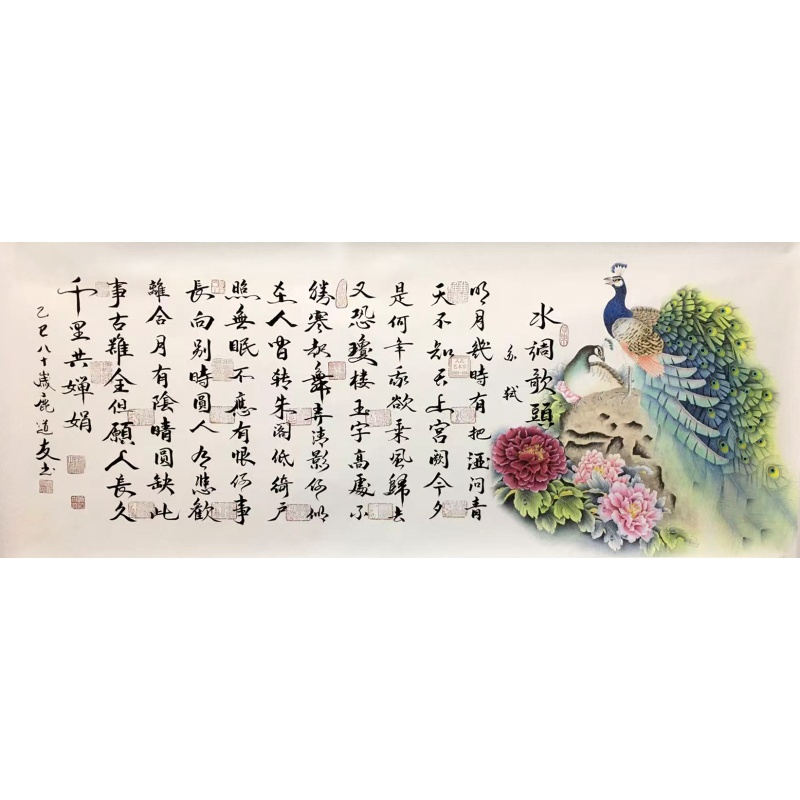 水調歌頭
蘇軾
明月幾時有把酒問青
天不知天上宮闕今夕
是何年我欲乘風歸去
又恐瓊樓玉宇高處不
勝寒起舞弄清影何似
在人間转朱阁低綺戶
照無眠不應有恨何事
長向别時圓人有悲歡
離合月有陰晴圓缺此
事古難全但願人長久
千里共嬋娟
乙巳八十歲鹿道友书